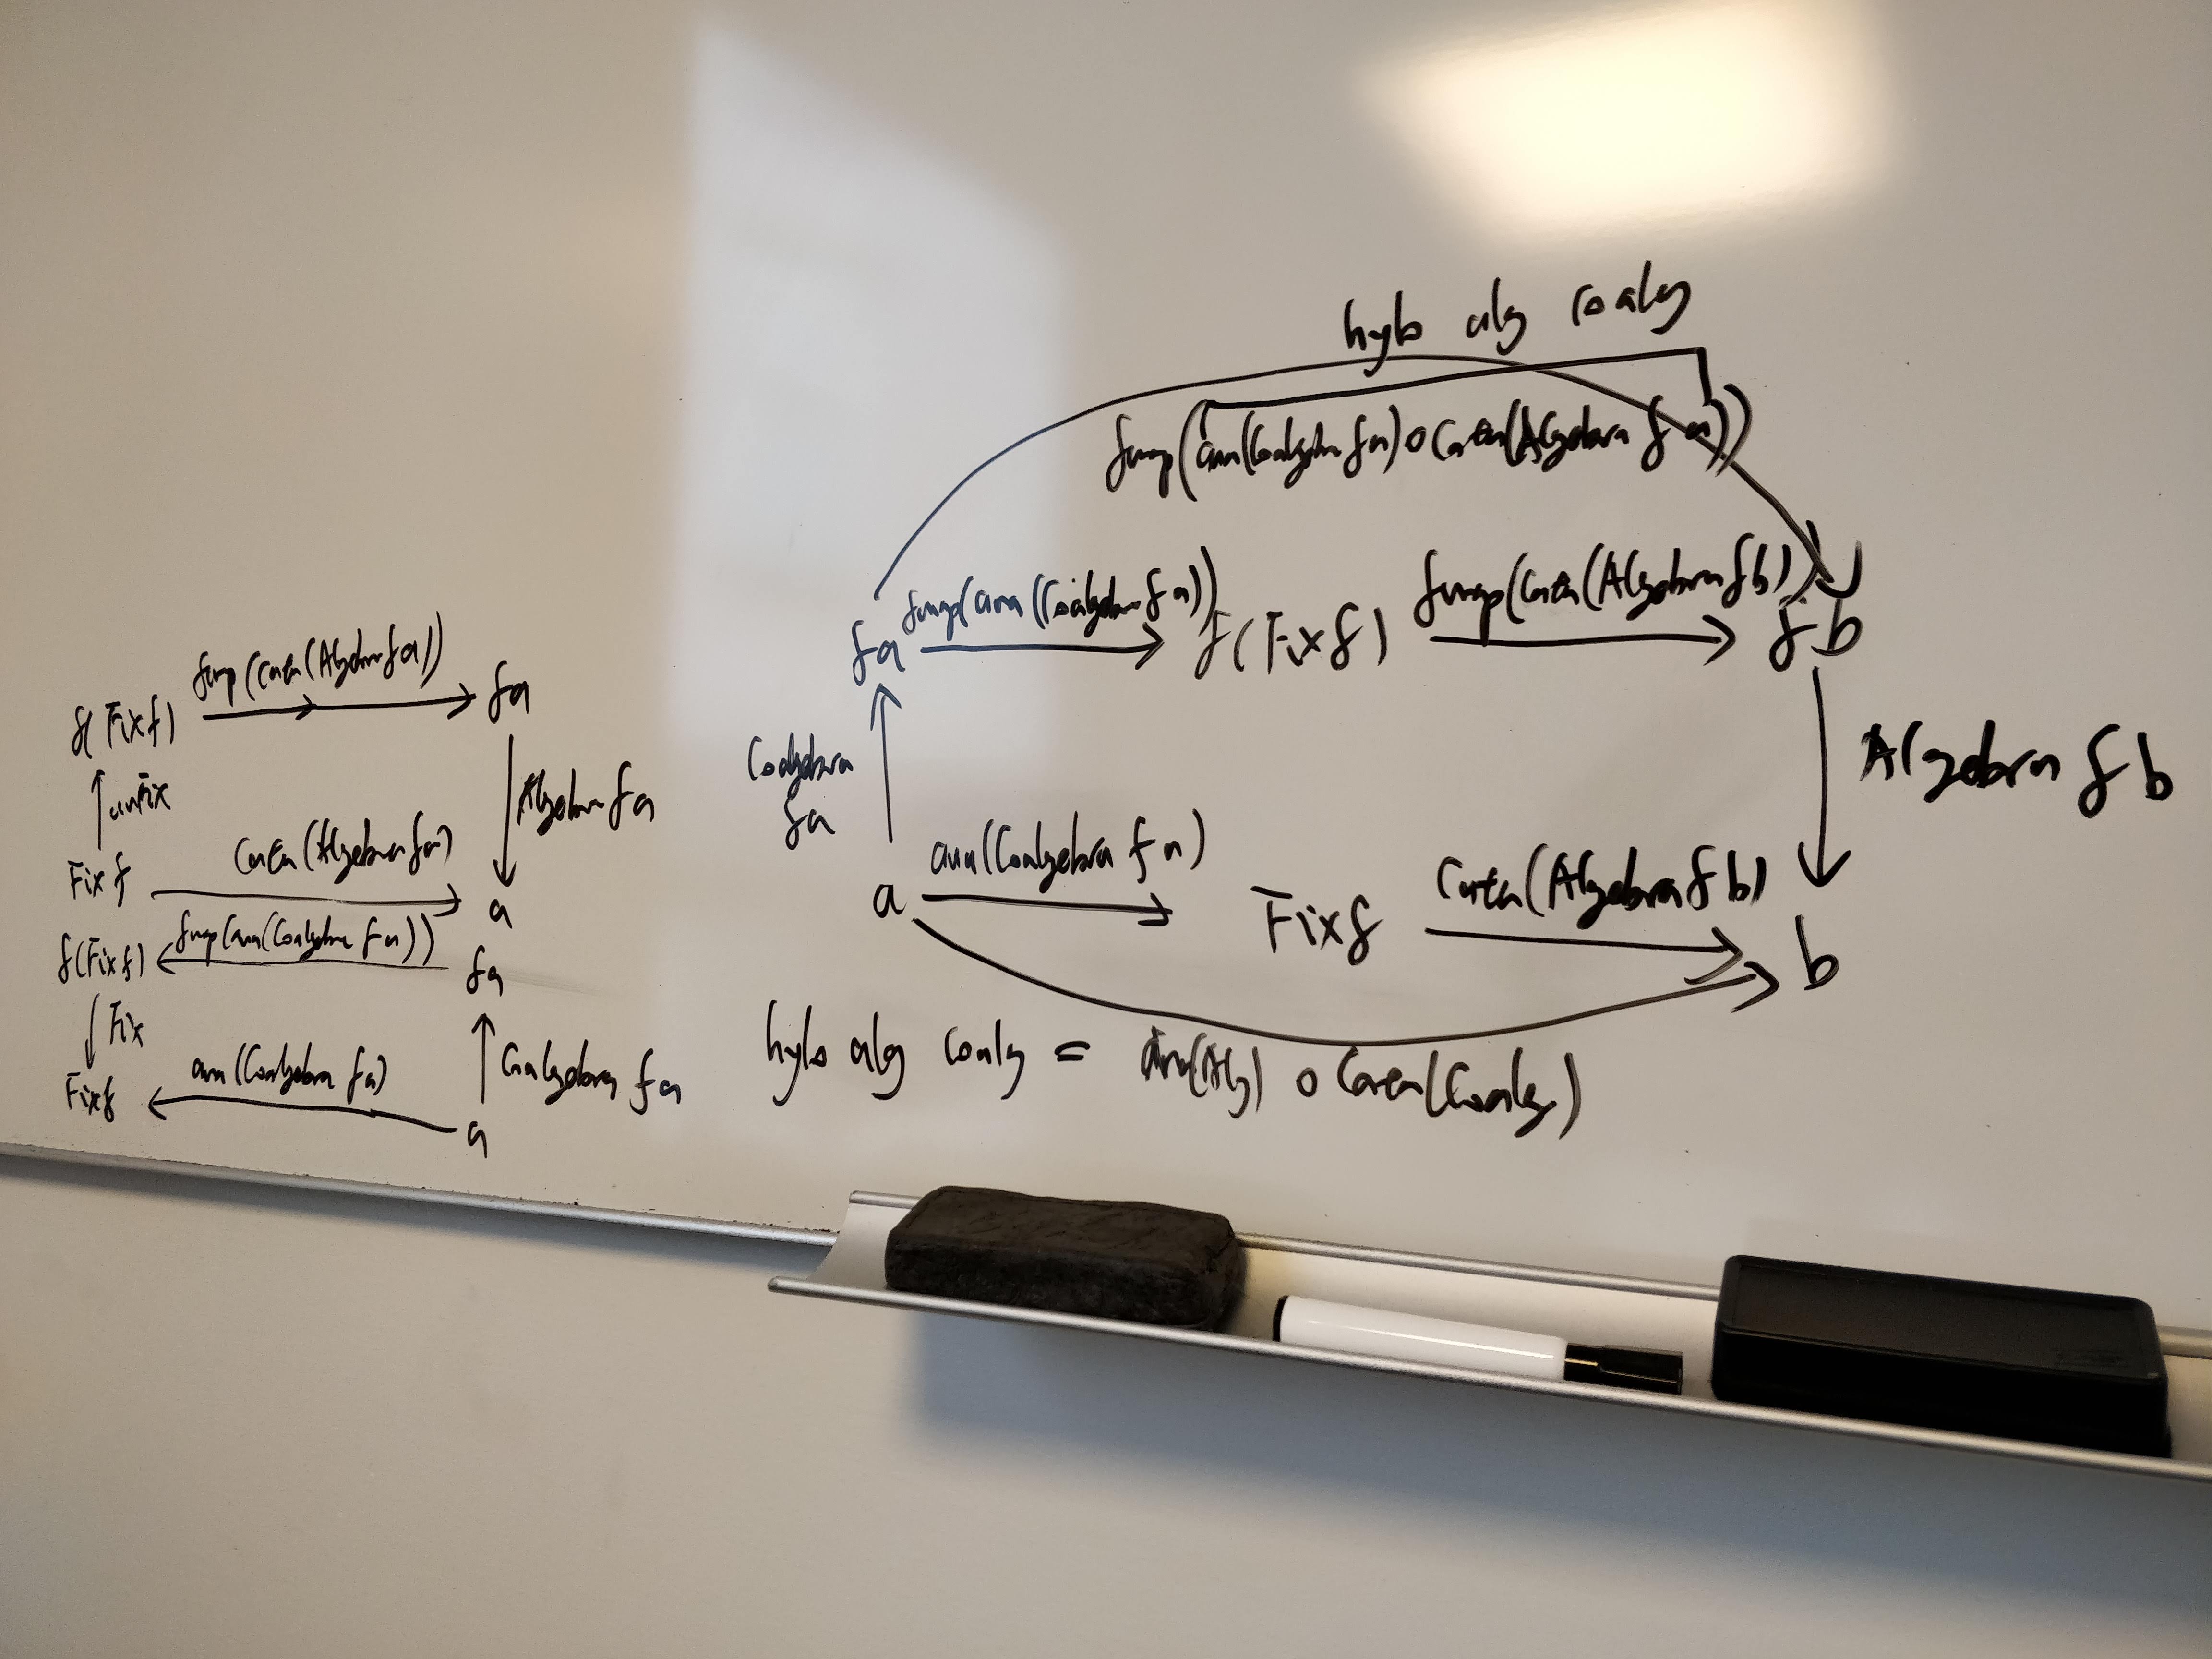 fmap(cata(Algebra f a))
f(Fix f)
f a
unFix
Algebra f a
cata(Algebra f a)
Fix f
a
fmap(ana(Coalgebra f a))
f(Fix f)
f a
Fix
Coalgebra f a
ana(Coalgebra f a)
Fix f
a
hylo alg coalg
fmap(ana(Coalgebra f a) o cata(Algebra f a))
fmap(ana(Coalgebra f a))
fmap(cata(Algebra f b))
f a
f(Fix f)
f b
Coalgebra
f a
Algebra f b
ana(Coalgebra f a)
cata(Algebra f b)
a
Fix f
b
hylo alg coalg = ana(Alg) o cata(Coalg)